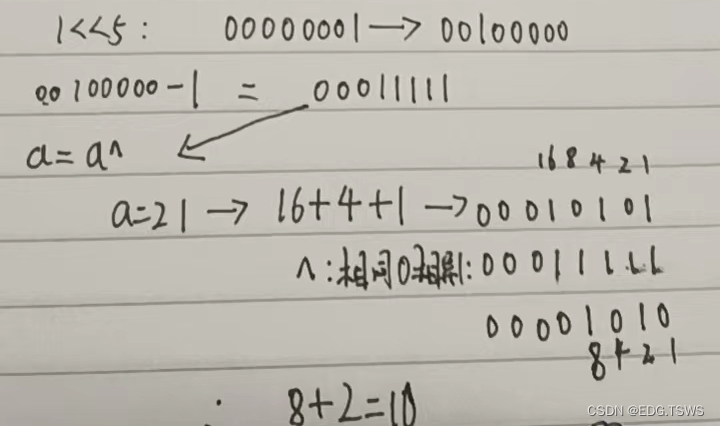 1<<5: 00000001→00100000
00100000-1 = 00011111
a=a^
16 8 4 2 1
a=21 → 16+4+1 →00010101
^:相同0相异1:00011111
00001010
8 4 2 1
8+2=10
CSDN @EDG.TSWS